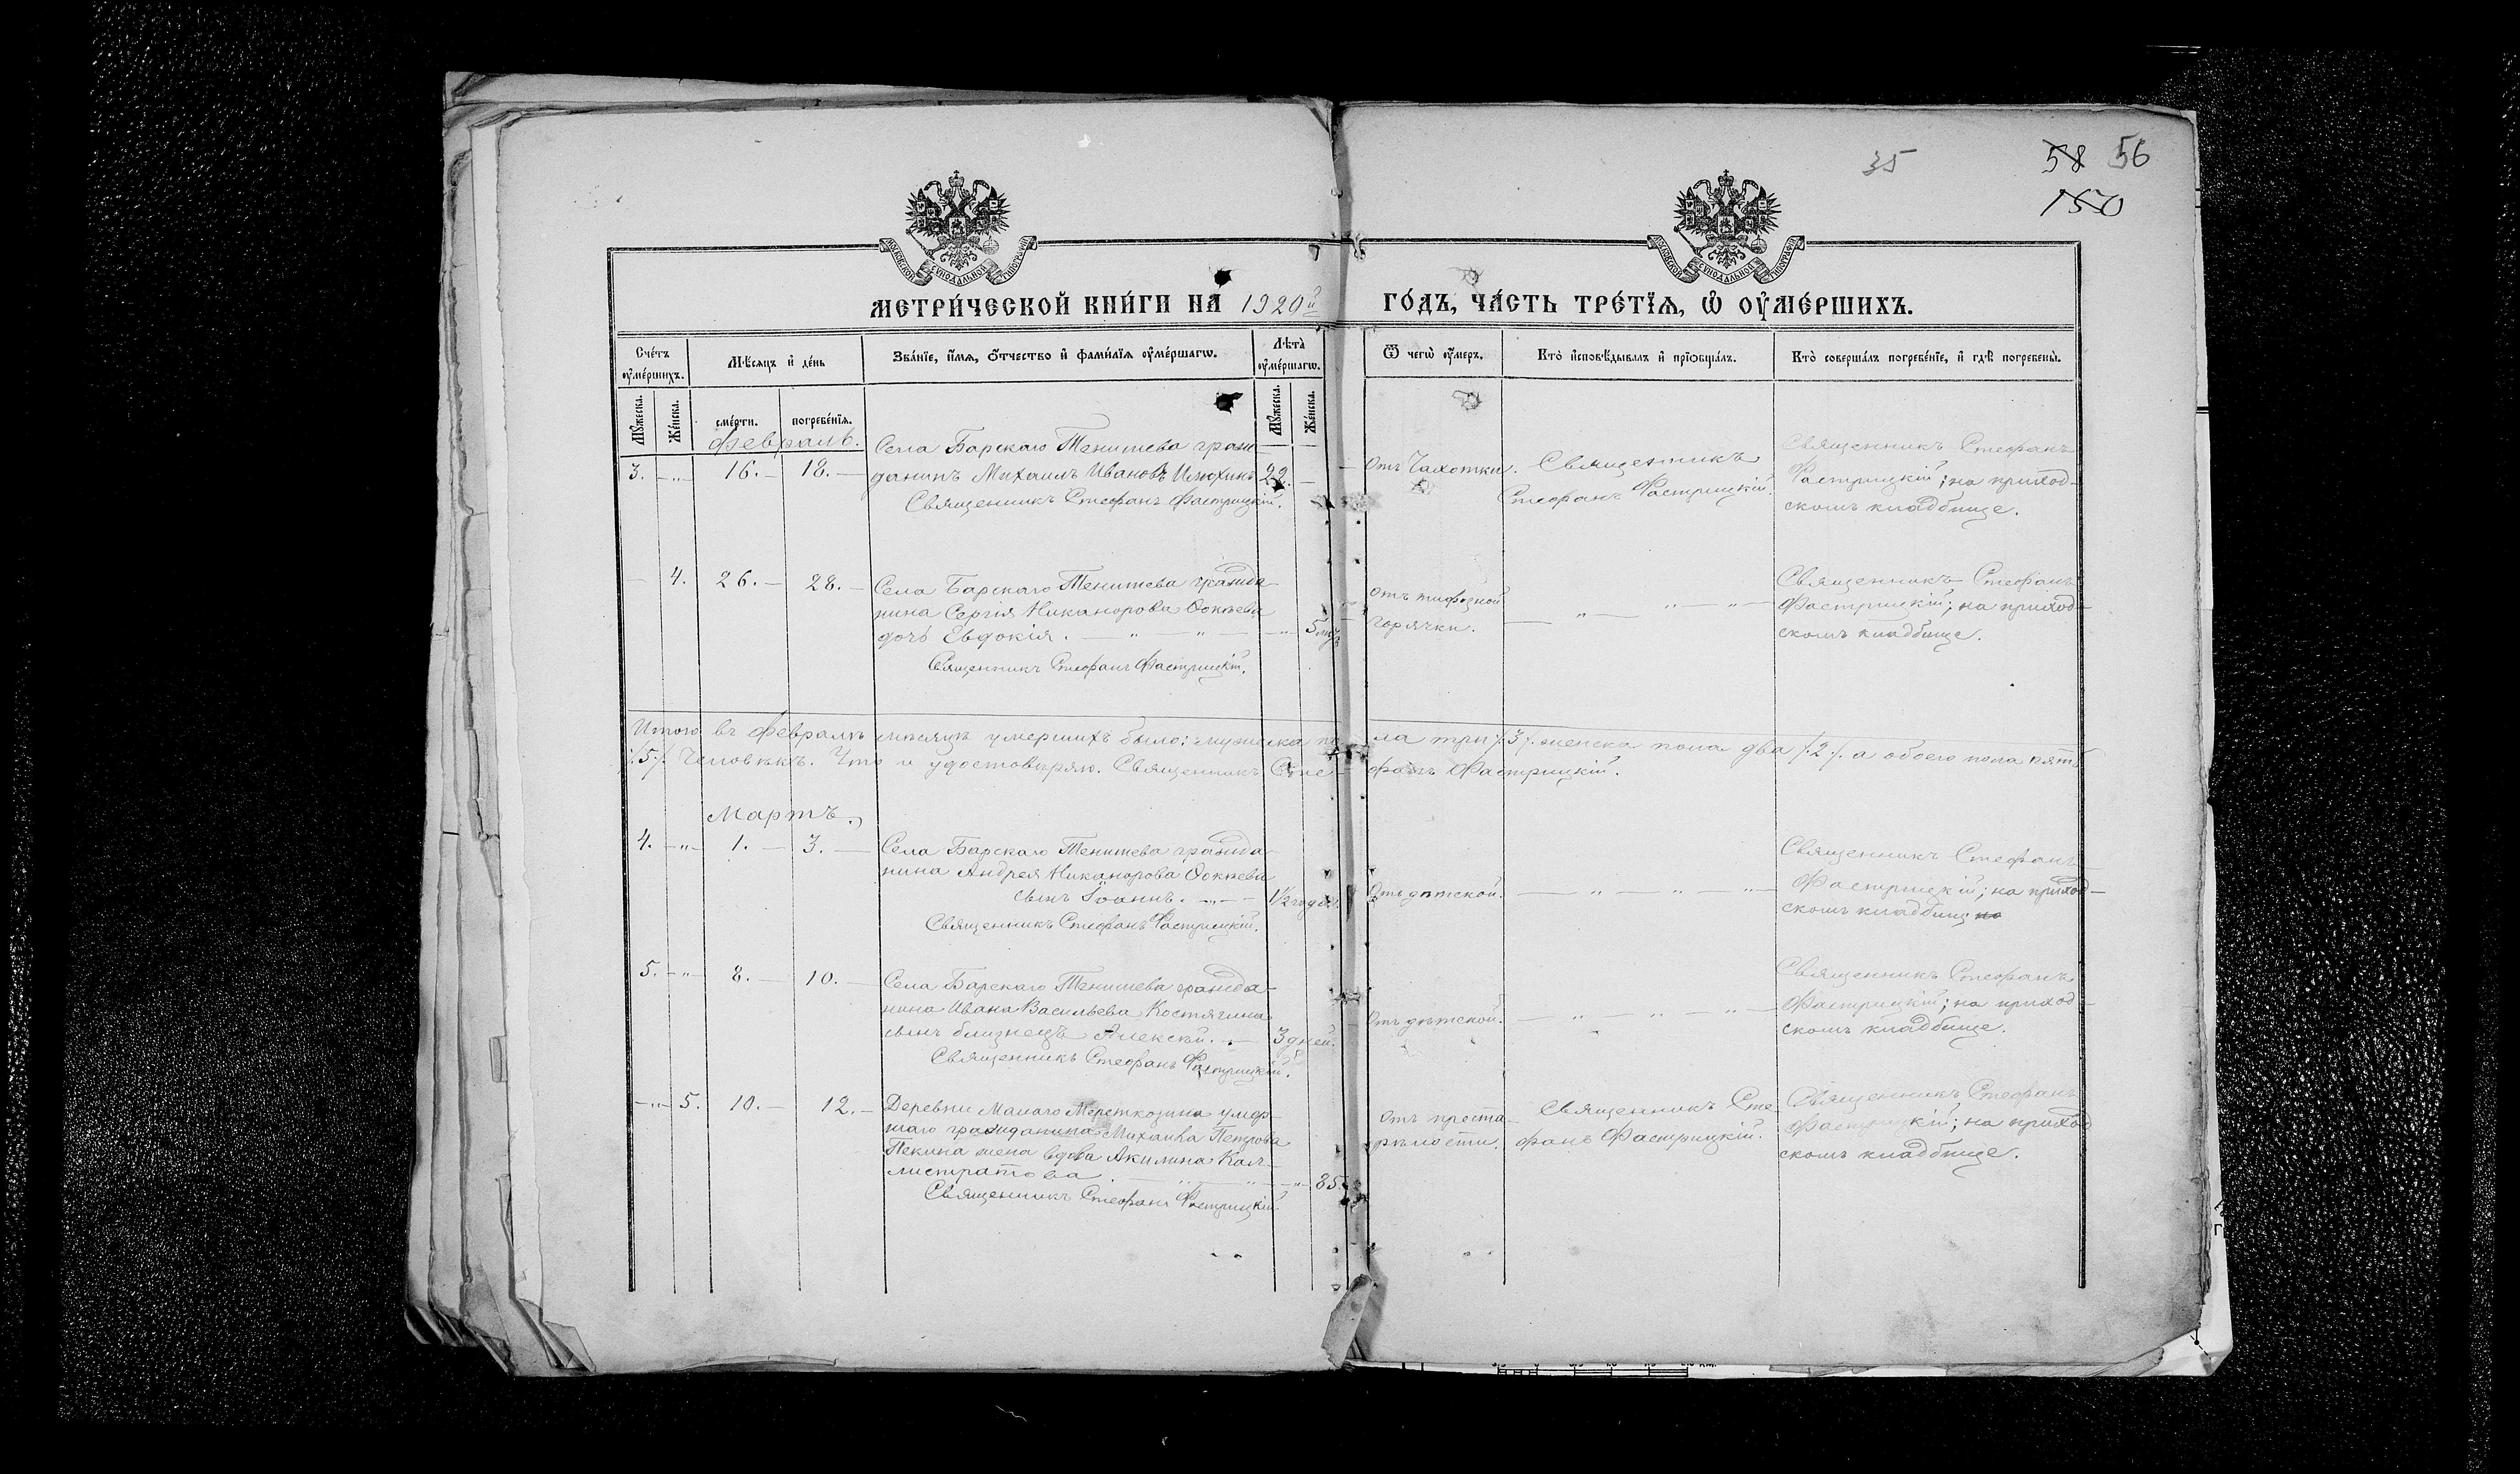 35
58 56
150
МОСКОВСКОЙ СѴНОДАЛЬНОЙ ТИПОГРАФІИ
МОСКОВСКОЙ СѴНОДАЛЬНОЙ ТИПОГРАФІИ
МЕТРИ́ЧЕСКОЙ КНИ́ГИ НА 1920й ГО́ДЪ, ЧА́СТЬ ТРЕ́ТІѦ, Ѡ҆ ОУ҆МЕ́РШИХЪ.
Сче́тъ оу҆ме́ршихъ.
Мѣ́сѧцъ и҆ де́нь
Зва́нїе, и҆́мѧ, ѻ҆́тчество и҆ фами́лїѧ оу҆ме́ршагѡ.
Лѣ́та̀ оу҆ме́ршагѡ.
Ѿ чегѡ̀ оу҆́меръ.
Кто̀ и҆сповѣ́дывалъ и҆ прїѡбща́лъ.
Кто̀ соверша́лъ погребе́нїе, и҆ гдѣ̀ погребены̀.
Мꙋ́жеска.
Же́нска.
сме́рти.
погребе́нїѧ.
Мꙋ́жеска.
Же́нска.
Февраль.
3. — „ — 16. — 18. —
Села Барскаго Тенишева граж-
данинъ Михаилъ Ивановъ Илюхинъ 22. —
Священникъ Стефанъ Фастрицкій.
Отъ Чахотки.
Священникъ
Стефанъ Фастрицкій.
Священникъ Стефанъ
Фастрицкій; на приход-
скомъ кладбище.
— 4. 26. — 28. —
Села Барскаго Тенишева гражда-
нина Сергія Никанорова
дочь Евдокія. — „ — „ — „ — 5
Священникъ Стефанъ Фастрицкій.
Отъ тифозной
горячки.
— „ — „ — „ —
Священникъ Стефанъ
Фастрицкій; на приход-
скомъ кладбище.
Итого въ Февралѣ мѣсяцѣ умершихъ было: мужеска пола три /.3/. женска пола два /.2/. а обоего пола пять
/.5/. Человѣкъ. Что и удостовѣряю. Священникъ Стефанъ Фастрицкій.
Мартъ.
4. — „ — 1. — 3. —
Села Барскаго Тенишева гражда-
нина Андрея Никанорова
сынъ Іоаннъ. — „ — 1½ года.
Священникъ Стефанъ Фастрицкій.
Отъ дѣтской.
— „ — „ — „ —
Священникъ Стефанъ
Фастрицкій; на приход-
скомъ кладбищ
5. — „ — 8. — 10. —
Села Барскаго Тенишева гражда-
нина Ивана Васильева Костягина
сынъ близнецъ Алексѣй. — 3 дней.
Священникъ Стефанъ Фастрицкій.
Отъ дѣтской.
— „ — „ — „ —
Священникъ Стефанъ
Фастрицкій; на приход-
скомъ кладбище.
— „ — 5. 10. — 12. —
Деревни Малаго умер-
шаго гражданина Михаила Петрова
Пекина жена вдова Акилина Кал-
листратова. — „ — „ — „ — 85.
Священникъ Стефанъ Фастрицкій
Отъ преста-
рѣлости.
Священникъ Сте-
фанъ Фастрицкій.
Священникъ Стефанъ
Фастрицкій; на приход-
скомъ кладбище.